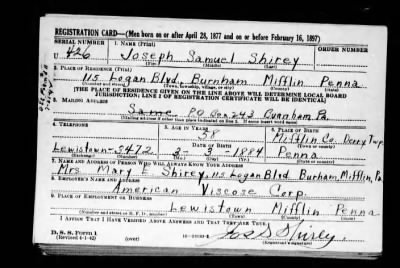 REGISTRATION CARD—(Men born on or after April 28, 1877 and on or before February 16, 1897)
SERIAL NUMBER 1. NAME (Print)
U 426 Joseph Samuel Shirey
(First) (Middle) (Last)
2. PLACE OF RESIDENCE (Print)
115 Logan Blvd. Burnham Mifflin Penna
(Number and street) (Town, township, village, or city) (County) (State)
[THE PLACE OF RESIDENCE GIVEN ON THE LINE ABOVE WILL DETERMINE LOCAL BOARD
JURISDICTION; LINE 2 OF REGISTRATION CERTIFICATE WILL BE IDENTICAL]
3. MAILING ADDRESS
Same PO Box 243 Burnham Pa.
[Mailing address if other than place indicated on line 2. If same insert word same]
4. TELEPHONE 5. AGE IN YEARS 6. PLACE OF BIRTH
58 Mifflin Co. Derry Twp.
DATE OF BIRTH
Lewistown-5472 2-3-1884 Penna
(Exchange) (Number) (Mo.) (Day) (Yr.) (State or country)
7. NAME AND ADDRESS OF PERSON WHO WILL ALWAYS KNOW YOUR ADDRESS
Mrs Mary E Shirey, 115 Logan Blvd Burham, Mifflin, Pa
8. EMPLOYER'S NAME AND ADDRESS
American Viscose Corp.
9. PLACE OF EMPLOYMENT OR BUSINESS
Lewistown Mifflin Penna
(Number and street or R. F. D. number) (Town) (County) (State)
I AFFIRM THAT I HAVE VERIFIED ABOVE ANSWERS AND THAT THEY ARE TRUE.
D. S. S. Form 1
(Revised 4-1-42) (over)
Jos S Shirey